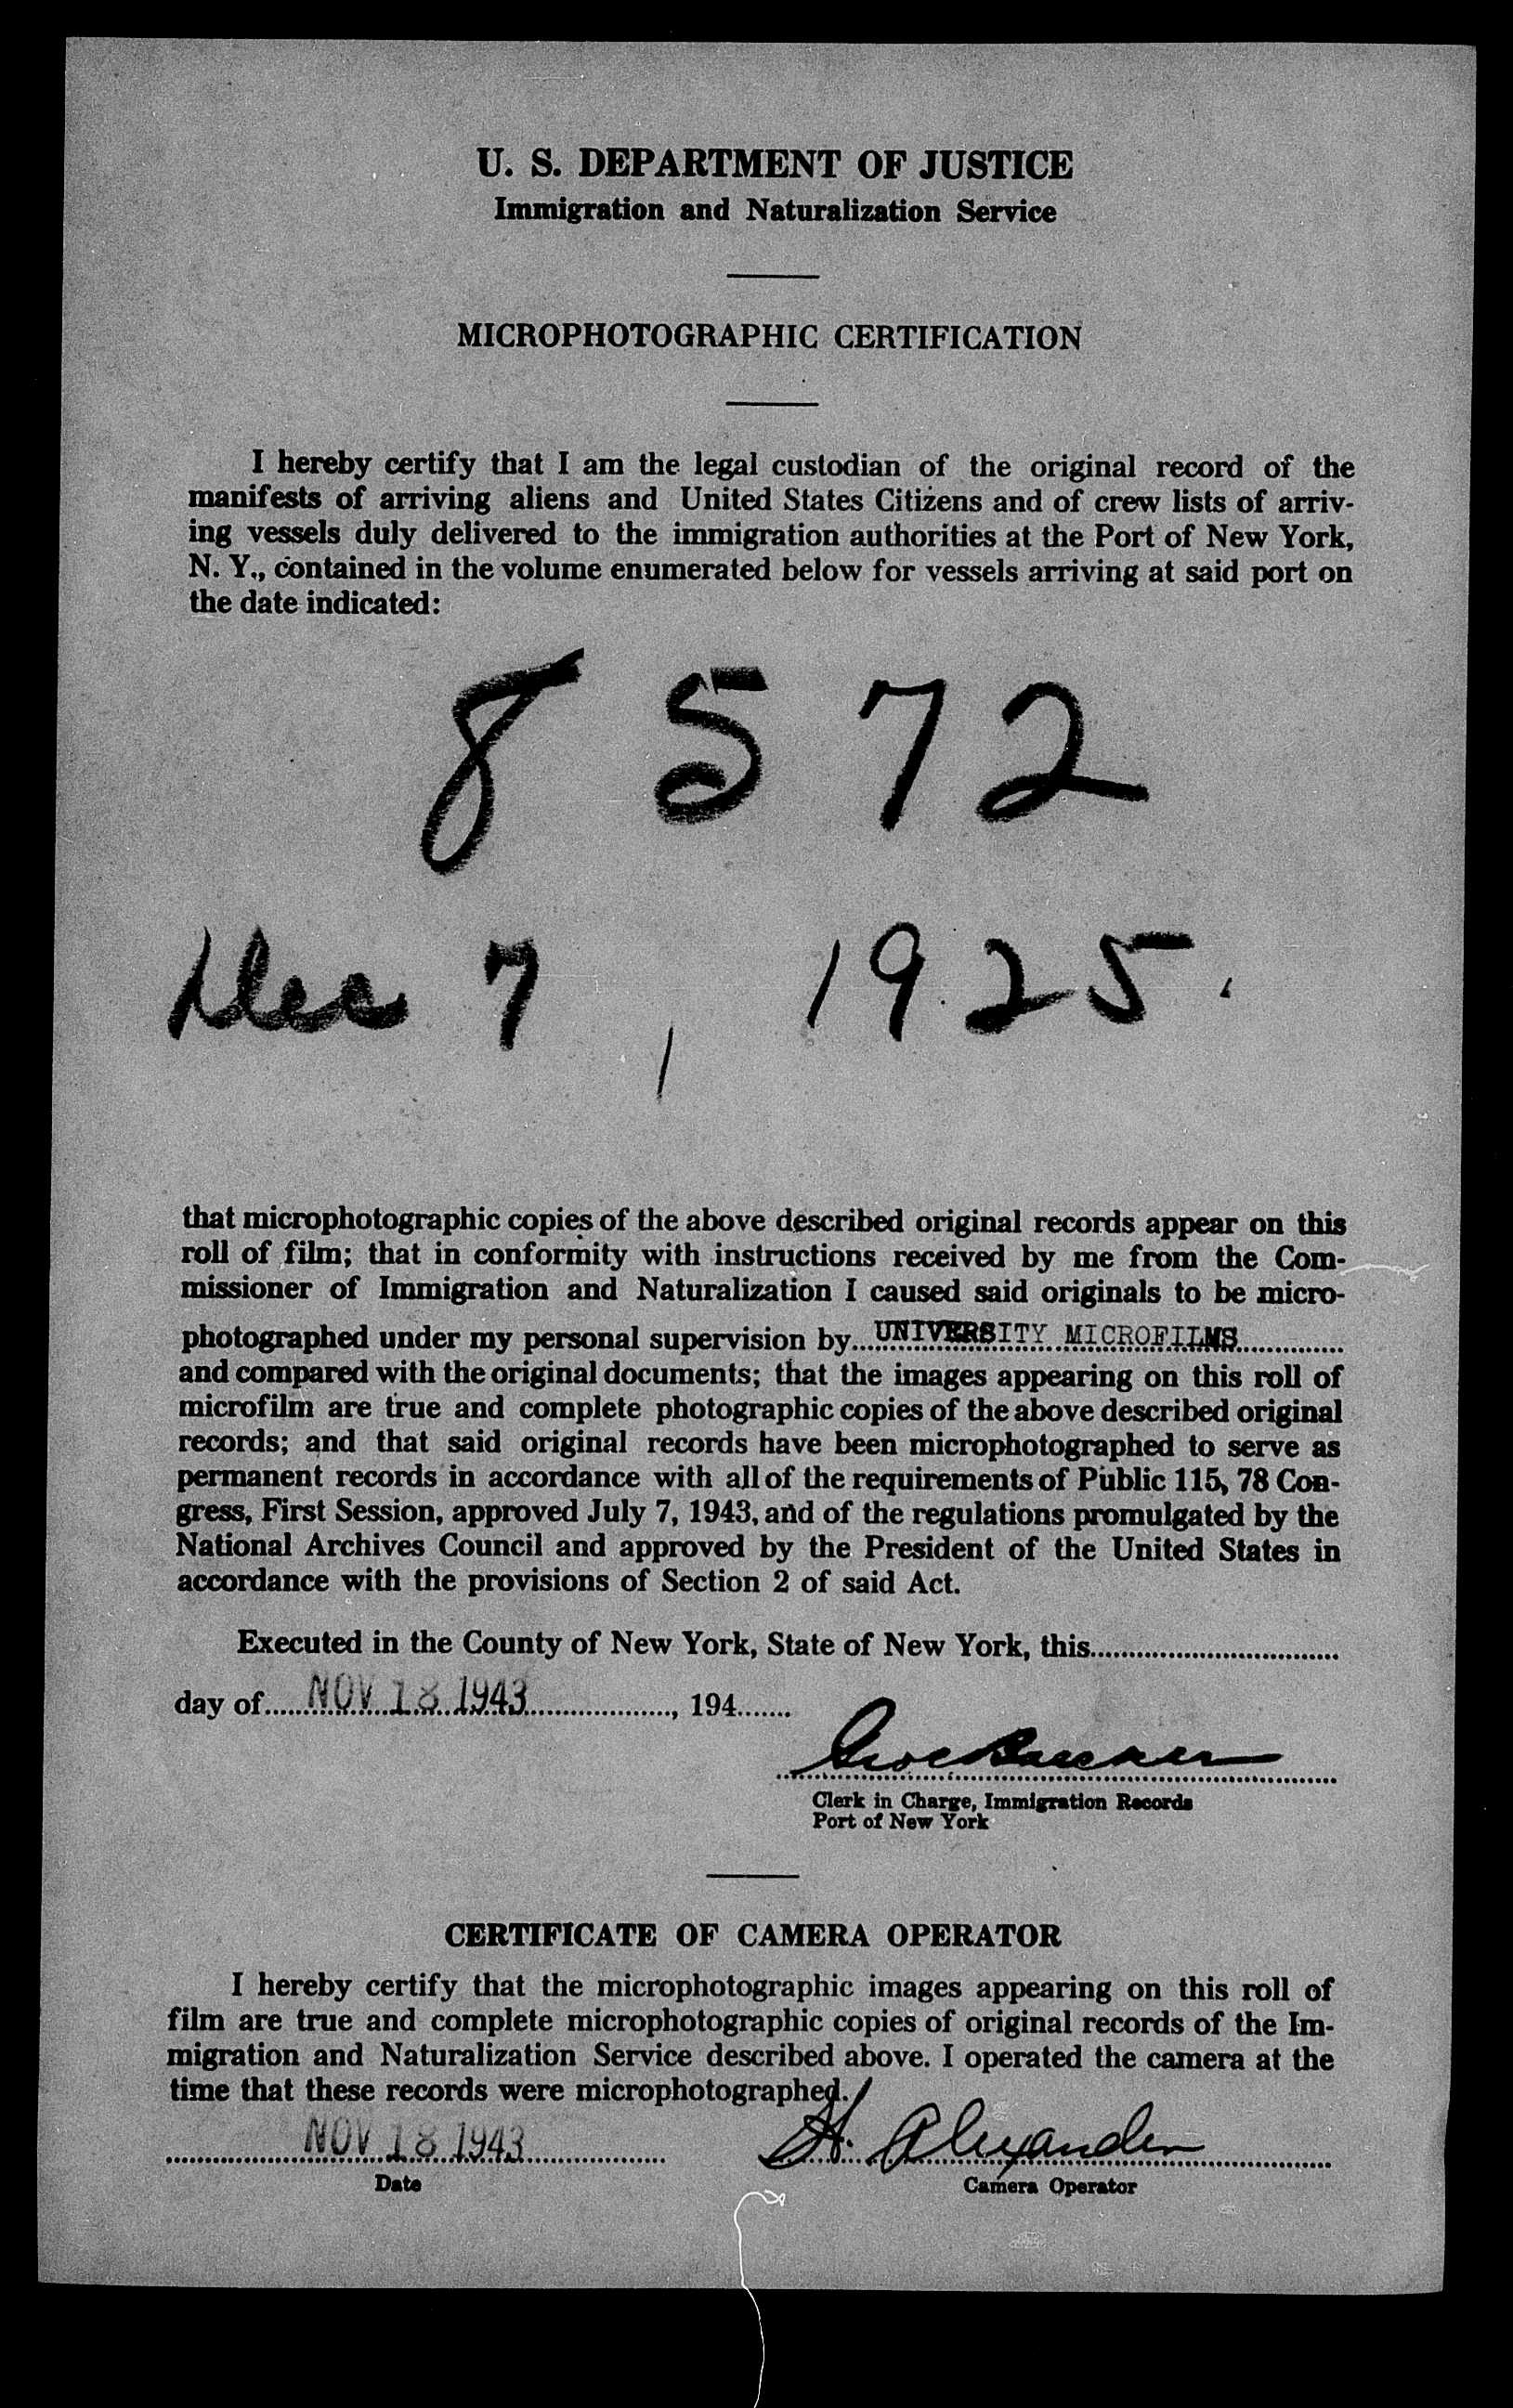 U. S. DEPARTMENT OF JUSTICE
Immigration and Naturalization Service
MICROPHOTOGRAPHIC CERTIFICATION
I hereby certify that I am the legal custodian of the original record of the
manifests of arriving aliens and United States Citizens and of crew lists of arriv-
ing vessels duly delivered to the immigration authorities at the Port of New York,
N. Y., contained in the volume enumerated below for vessels arriving at said port on
the date indicated:
8572
Dec 7, 1925.
that microphotographic copies of the above described original records appear on this
roll of film; that in conformity with instructions received by me from the Com-
missioner of Immigration and Naturalization I caused said originals to be micro-
photographed under my personal supervision by UNIVERSITY MICROFILMS
and compared with the original documents; that the images appearing on this roll of
microfilm are true and complete photographic copies of the above described original
records; and that said original records have been microphotographed to serve as
permanent records in accordance with all of the requirements of Public 115, 78 Con-
gress, First Session, approved July 7, 1943, and of the regulations promulgated by the
National Archives Council and approved by the President of the United States in
accordance with the provisions of Section 2 of said Act.
Executed in the County of New York, State of New York, this
day of NOV 18 1943, 194
Clerk in Charge, Immigration Records
Port of New York
CERTIFICATE OF CAMERA OPERATOR
I hereby certify that the microphotographic images appearing on this roll of
film are true and complete microphotographic copies of original records of the Im-
migration and Naturalization Service described above. I operated the camera at the
time that these records were microphotographed.
NOV 18 1943 H. Alexander
Date Camera Operator